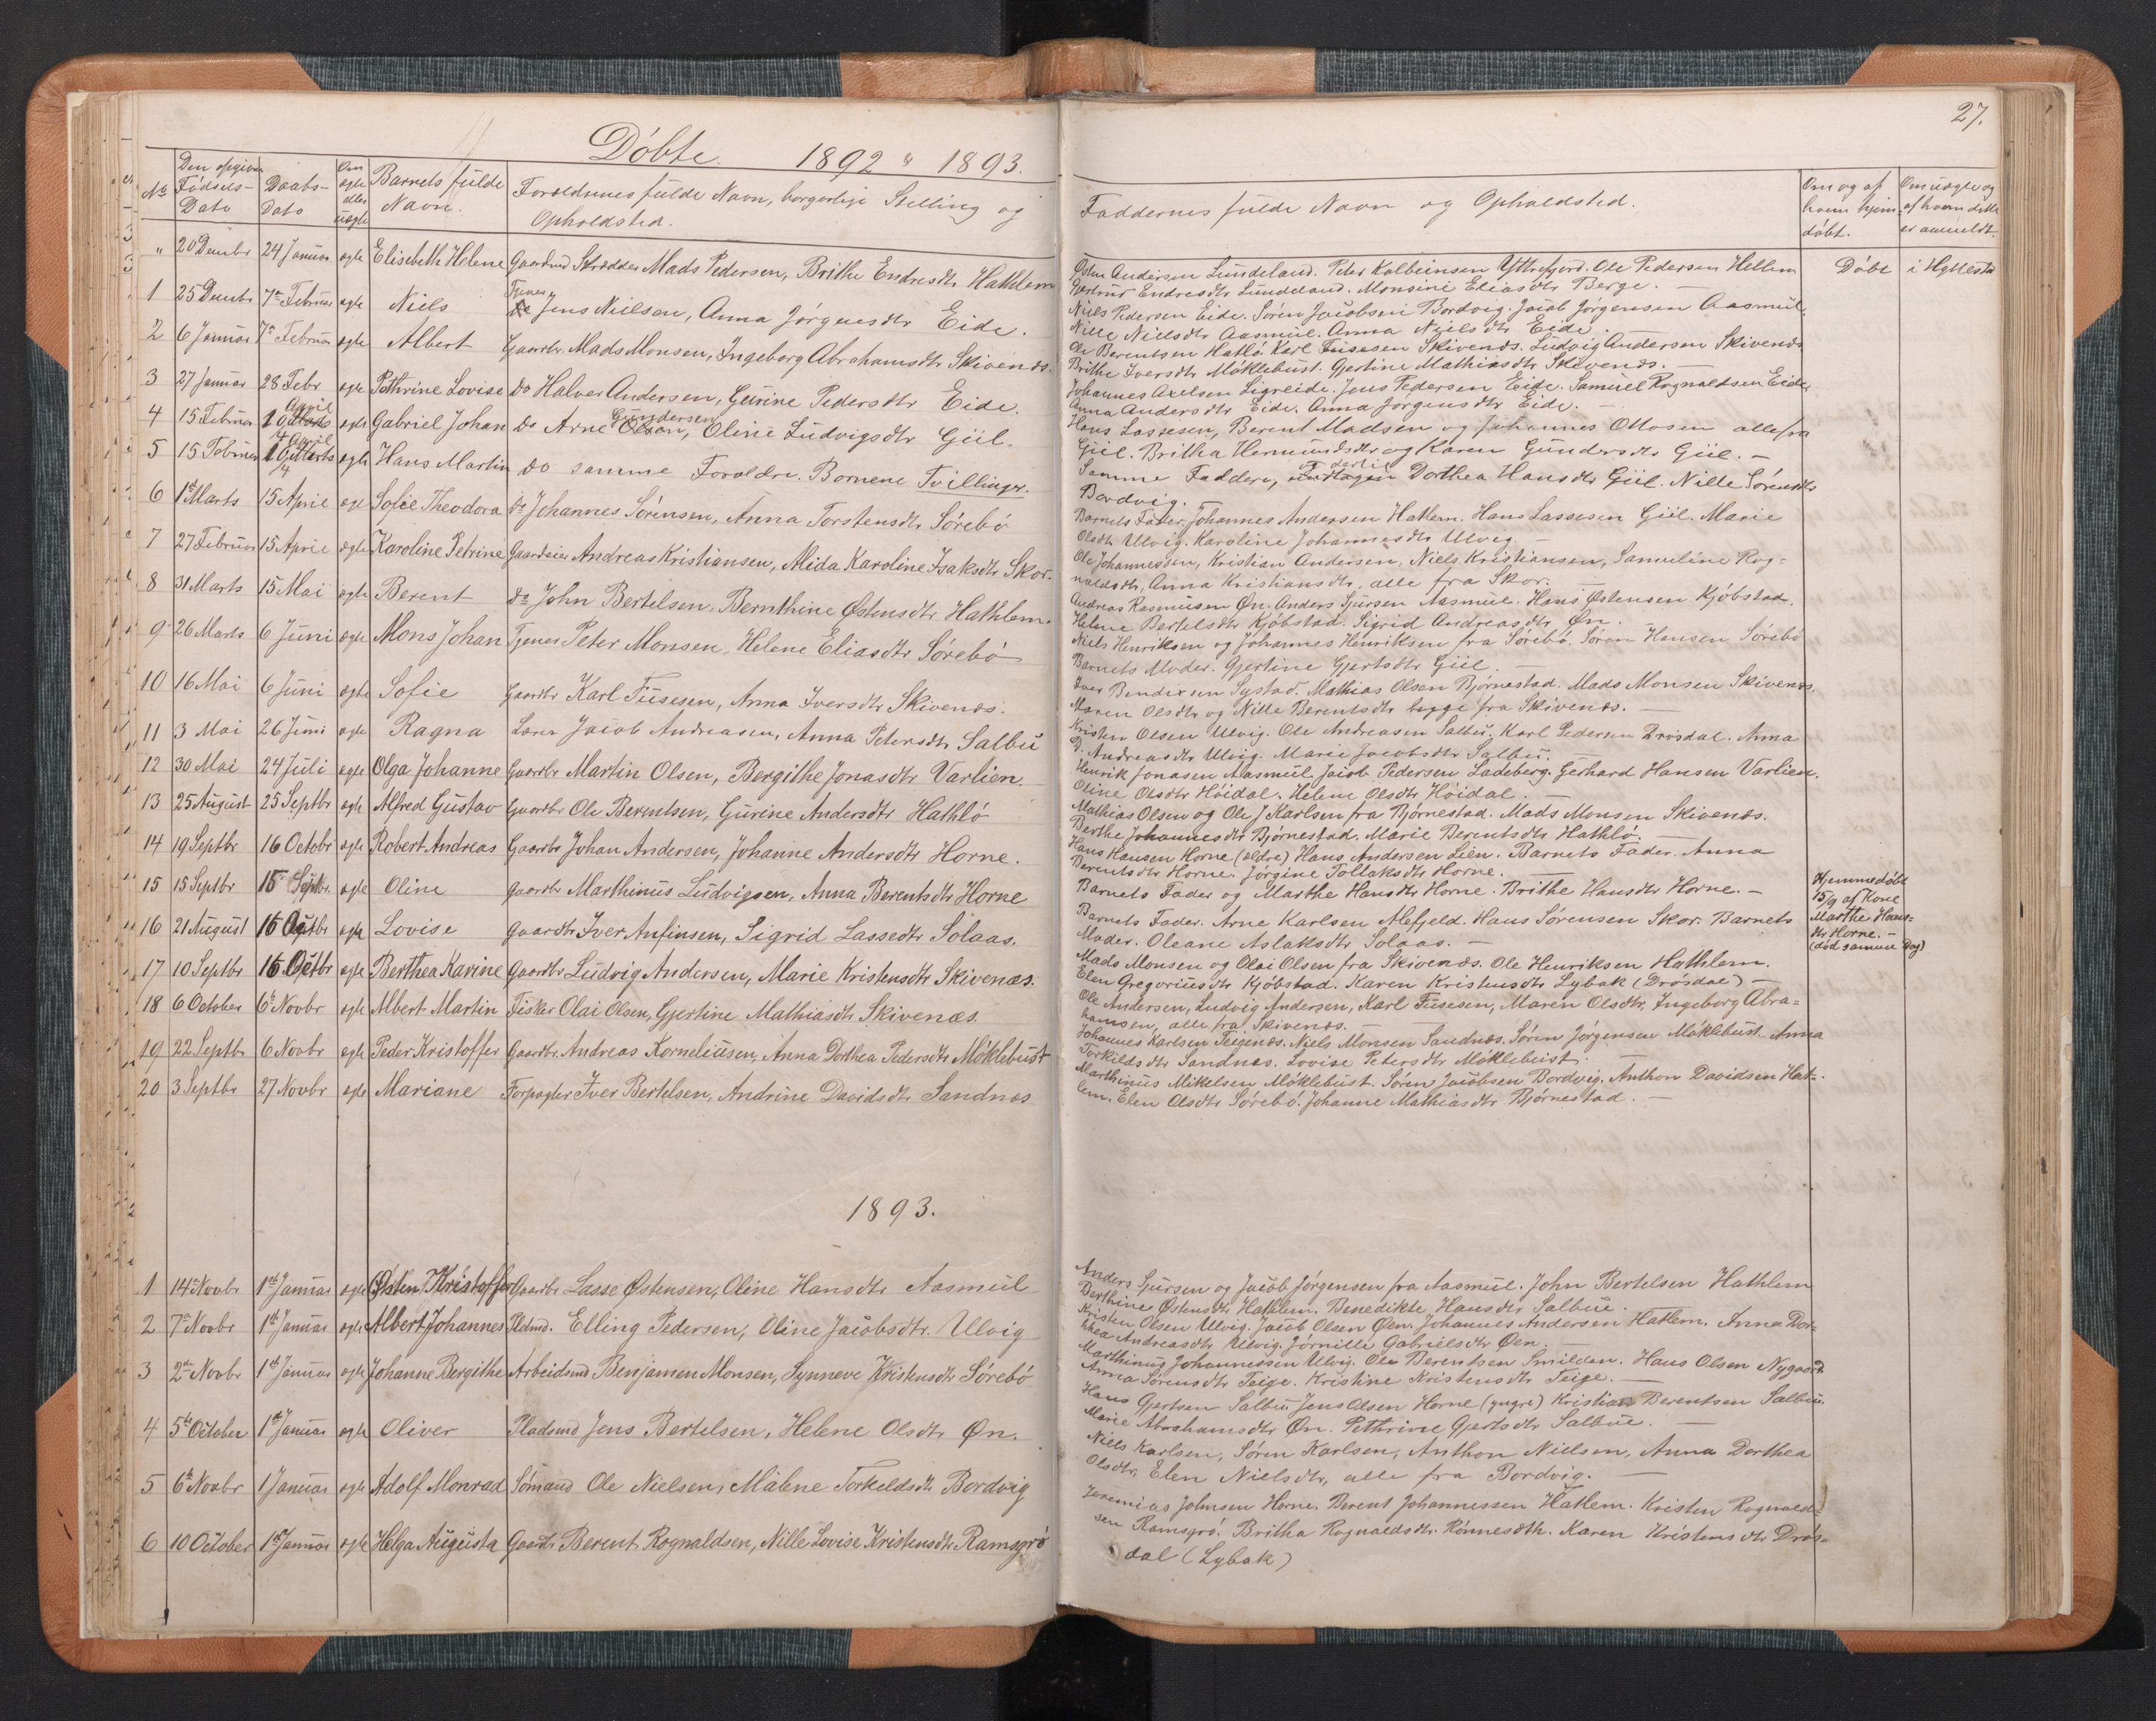 27.
Döbte. 1892 " 1893.
No
Den opgivne Fødsels-Dato
Daabs-Dato
Om ægte eller uægte
Barnets fulde Navn.
Forældrenes fulde Navn, borgerlige Stilling og Opholdsted.
Faddernes fulde Navn og Opholdsted.
Om og af hvem hjemdöbt.
Om uægte og af hvem dette er anmeldt.
" 20 Decmbr 24 Januar ægte Elisabeth Helene Gaardmd Skrædder Mads Pedersen, Brithe Endresdtr Hathlem
Østen Andersen Lundeland. Peter Kolbeinsen Yttrefjord. Ole Pedersen Hellem
Gjertrud Endresdtr Lundeland. Monsine Eliasdtr Berge. —
Döbt i Hyllestad
1 25 Decmbr 7de Februar ægte Niels Tjener Jens Nielsen, Anna Jörgensdtr Eide.
Niels Pedersen Eide. Sören Jacobsen Bordvig. Jacob Jörgensen Aasmul,
Nille Nielsdtr Aasmul. Anna Nielsdtr Eide.
2 6 Januar 7de Februar ægte Albert Gaardbr. Mads Monsen, Ingeborg Abrahamsdtr Skivenæs.
Ole Berentsen Hatlö. Karl Fusesen Skivenæs. Ludvig Andersen Skivenæs
Brithe Iversdtr Möklebust. Gjertine Mathiasdtr Skivenæs. —
3 27 Januar 28 Febr ægte Pethrine Lovise do Halver Andersen, Gurine Pedersdtr Eide.
Johannes Axelsen Ligreide. Jens Pedersen Eide. Samuel Rognaldsen Eide
Anna Andersdtr Eide. Anna Jörgensdtr Eide. —
4 15 Februar 10 April ægte Gabriel Johan do Arne Gundersen, Oline Ludvigsdtr Giil.
Hans Lassesen, Berent Madsen og Johannes Ottosen alle fra
Giil. Britha Hermundsdtr og Karen Gundersdtr Giil. —
5 15 Februar 10/4 April ægte Hans Martin do samme Forældre. Börnene Tvillinger.
Samme Faddere, og dertil Dorthea Hansdtr Giil. Nille Sörensdtr
Bordvig.
6 1ste Marts 15 April ægte Sofie Theodora do Johannes Sörensen, Anna Torstensdtr Sörebö
Barnets Fader, Johannes Andersen Hatlem. Hans Lassesen Giil. Marie
Olsdtr Ulvig. Karoline Johannesdtr Ulvig —
7 27 Februar 15 April ægte Karoline Petrine Gaardeier Andreas Kristiansen, Alida Karoline Isaksdtr Skor.
Ole Johannessen, Kristian Andersen, Niels Kristiansen, Samueline Rog=
naldsdtr, Anna Kristiansdtr, alle fra Skor. —
8 31 Marts 15 Mai ægte Berent do John Bertelsen, Bernthine Østensdtr Hathlem.
Andreas Rasmusen Øn. Anders Sjursen Aasmul. Hans Østensen Kjöbstad.
Helene Bertelsdtr Kjöbstad. Sigrid Andreasdtr Øn.
9 26 Marts 6 Juni ægte Mons Johan Tjener Peter Monsen, Helene Eliasdtr Sörebö
Niels Henriksen og Johannes Henriksen fra Sörebö. Sören Hansen Sörebö
Barnets Moder. Gjertine Gjertsdtr Giil. —
10 16 Mai 6 Juni ægte Sofie Gaardbr Karl Fusesen, Anna Iversdtr Skivenæs.
Iver Bendixsen Systad. Mathias Olsen Björnestad. Mads Monsen Skivenæs.
Maren Olsdtr og Nille Berentsdtr begge fra Skivenæs. —
11 3 Mai 26 Juni ægte Ragna Lærer Jacob Andreasen, Anna Petersdtr Salbu
Kristen Olsen Ulvig. Ole Andreasen Salbu. Karl Pedersen Drösdal. Anna
D. Andreasdtr Ulvig. Marie Jacobsdtr Salbu.
12 30 Mai 24 Juli ægte Olga Johanne Gaardbr Martin Olsen, Bergithe Jonasdtr Varlien.
Henrik Jonasen Aasmul. Jacob Pedersen Ladeberg. Gerhard Hansen Varlien.
Oline Olsdtr Höidal. Helene Olsdtr Höidal. —
13 25 August 25 Septbr ægte Alfred Gustav Gaardbr Ole Berentsen, Gurine Andersdtr Hathlö
Mathias Olsen og Ole J Karlsen fra Björnestad. Mads Monsen Skivenæs.
Berthe Johannesdtr Björnestad. Marie Berentsdtr Hathlö. —
14 19 Septbr 16 Octobr ægte Robert Andreas Gaardbr Johan Andersen, Johanne Andersdtr Horne.
Hans Hansen Horne (ældre) Hans Andersen Lien. Barnets Fader. Anna
Berentsdtr Horne. Jörgine Tollaksdtr Horne. —
15 15 Septbr 15 Septbr. ægte Oline Gaardbr Marthinus Ludvigsen, Anna Berentsdtr Horne
Barnets Fader og Marthe Hansdtr Horne. Brithe Hansdtr Horne. —
Hjemmedöbt 15/9 af Kone Marthe Hans=dtr Horne. — (död samme Dag)
16 21 August 16 Octbr ægte Lovise Gaardbr Iver Anfinsen, Sigrid Lassedtr Solaas.
Barnets Fader. Arne Karlsen Alefjeld. Hans Sörensen Skor. Barnets
Moder. Oleane Aslaksdtr Solaas. —
17 10 Septbr 16 Octbr ægte Berthea Karine Gaardbr Ludvig Andersen, Marie Kristensdtr Skivenæs.
Mads Monsen og Olai Olsen fra Skivenæs. Ole Henriksen Hathlem.
Elen Gregoriusdtr Kjöbstad. Karen Kristensdtr Lybak (Drösdal) —
18 6 October 6te Novbr ægte Albert Martin Fisker Olai Olsen, Gjertine Mathiasdtr Skivenæs.
Ole Andersen, Ludvig Andersen, Karl Fusesen, Maren Olsdtr, Ingeborg Abra=
hamsen, alle fra Skivenæs.
19 22 Septbr 6 Novbr ægte Peder Kristoffer Gaardbr. Andreas Korneliusen, Anna Dorthea Pedersdtr Möklebust
Johannes Karlsen Teigenæs. Niels Monsen Sandnæs. Sören Jörgensen Möklebust. Anna
Torkildsdtr Sandnæs. Lovise Petersdtr Möklebust. —
20 3 Septbr 27 Novbr ægte Mariane Forpagter Iver Bertelsen, Andrine Davidsdtr Sandnæs
Marthinus Mikelsen Möklebust. Sören Jacobsen Bordvig. Anthon Davidsen Hat=
lem. Elen Olsdtr Sörebö. Johanne Mathiasdtr Björnestad. —
1893.
1 14de Novbr 1ste Januar ægte Østen Kristoffer Gaardbr Lasse Østensen, Oline Hansdtr Aasmul
Anders Sjursen og Jacob Jörgensen fra Aasmul. John Bertelsen Hathlem
Berthine Østensdtr Hathlem. Benedikte Hansdtr Salbu.
2 7de Novbr 1ste Januar ægte Albert Johannes Pladsmd. Elling Pedersen, Oline Jacobsdtr. Ulvig
Kristen Olsen Ulvig. Jacob Olsen Øen. Johannes Andersen Hatlem. Anna Dor=
thea Andreasdtr Ulvig. Jörnille Gabrielsdtr Øen. —
3 2den Novbr 1ste Januar ægte Johanne Bergithe Arbeidsmd Benjamen Monsen, Synneve Kristensdtr Sörebö
Marthinus Johannessen Ulvig. Ole Berentsen Smilden. Hans Olsen Nygaard.
Anna Sörensdtr Teige. Kristine Kristensdtr Teige. —
4 5te October 1ste Januar ægte Oliver Pladsmd Jens Bertelsen, Helene Olsdtr Øn.
Hans Gjertsen Salbu Jens Olsen Horne (yngre) Kristian Berentsen Salbu.
Marie Abrahamsdtr Øn. Pethrine Gjertsdtr Salbu. —
5 6te Novbr 1 Januar ægte Adolf Monrad Sömand Ole Nielsen, Malene Torkeldsdtr Bordvig
Niels Karlsen, Sören Karlsen, Anthon Nielsen, Anna Dorthea
Olsdtr, Elen Nielsdtr, alle fra Bordvig. —
6 10 October 1ste Januar ægte Helga Augusta Gaardbr Berent Rognaldsen, Nille Lovise Kristensdtr Ramsgrö
Jeremias Johnsen Horne. Berent Johannessen Hatlem. Kristen Rognald=
sen Ramsgrö. Britha Rognaldsdtr. Rönnesdth. Karen Kristensdtr Drös=
dal (Lybak)